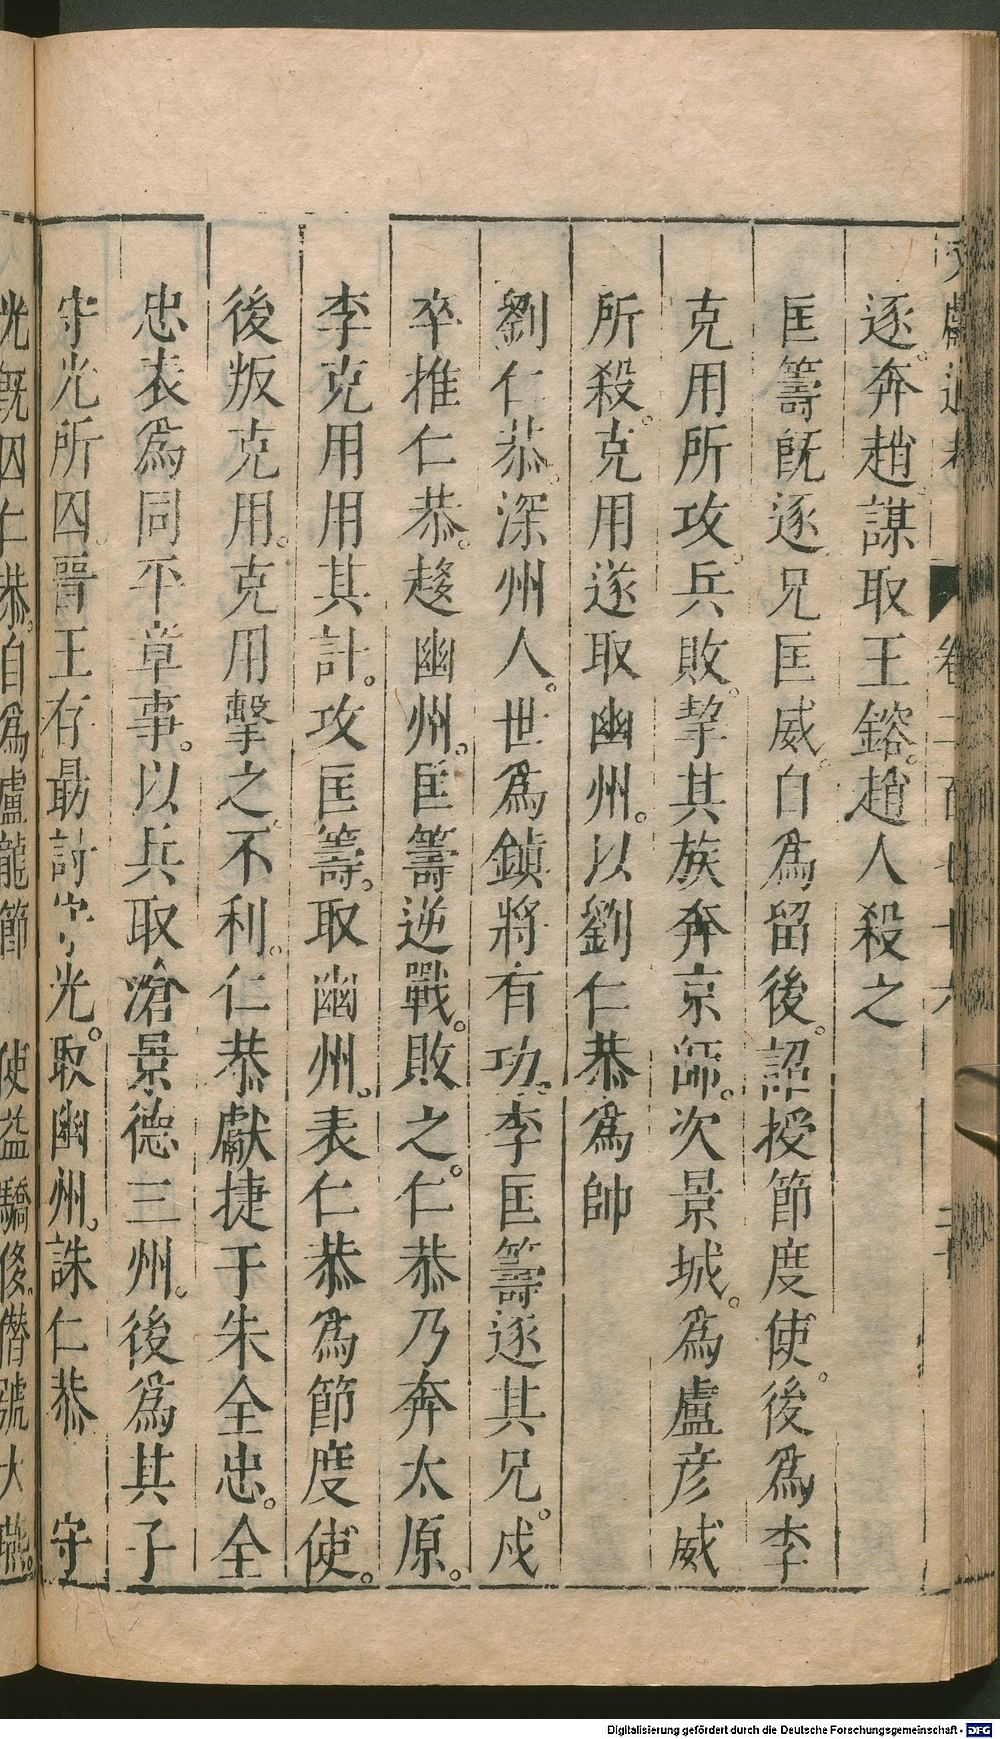 逐。奔趙。謀取王鎔。趙人殺之
匡籌旣逐兄匡威。自爲留後。詔授節度使。後爲李
克用所攻。兵敗。挈其族奔京師。次景城。爲盧彦威
所殺。克用遂取幽州。以劉仁恭爲帥
劉仁恭。深州人。世爲鎮將有功。李匡籌逐其兄。戍
卒推仁恭。趍幽州。匡籌逆戰。敗之。仁恭乃奔太原。
李克用用其計。攻匡籌。取幽州。表仁恭爲節度使。
後叛克用。克用擊之。不利。仁恭獻捷于朱全忠。全
忠表爲同平章事。以兵取滄景德三州。後爲其子
守光所囚。晉王存勗討守光。取幽州。誅仁恭 守
光旣囚仁恭。自爲盧龍節 使益驕侈。僭號大燕。
文獻通考 卷二百七十六
Digitalisierung gefördert durch die Deutsche Forschungsgemeinschaft - DFG